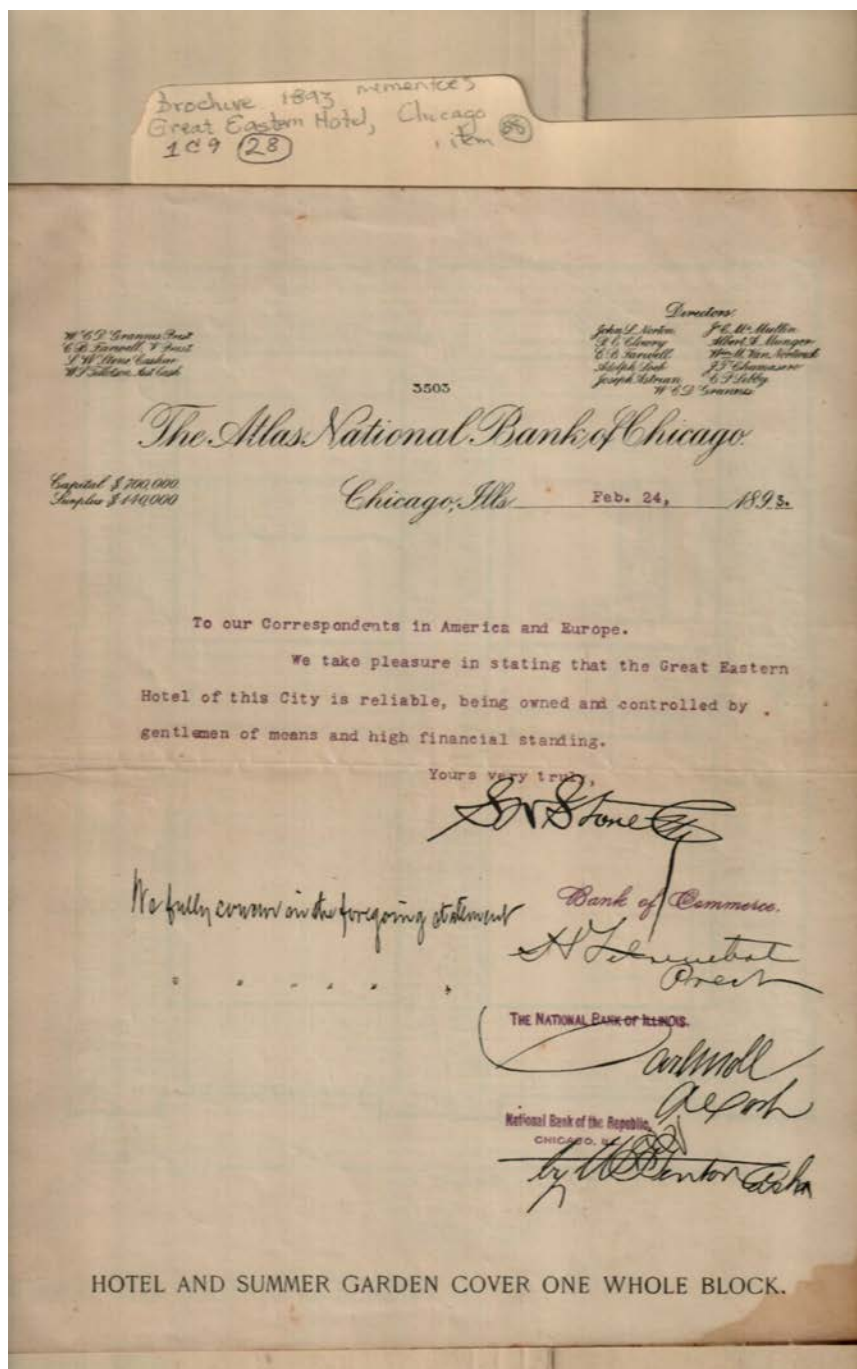 Brochure 1893 mementoes
Great Eastern Hotel, Chicago
1C9 (28) , item 88
W.C.D. Grannis Prest
C.B. Farwell, V. Prest
S.W. Stone Cashier
W.S. Tillotson, Asst Cash
Directors:
John L. Norton J.C. McMullin
R.C. Clowry Albert A. Munger
C.B. Farwell Wm. M. Van Nortwick
Adolph Loeb J.T. Chumasero
Joseph C.P. Libby
W.C.D. Grannis
3503
The Atlas National Bank of Chicago.
Capital $700,000
Surplus $140,000
Chicago, Ills Feb. 24, 1893.
To our Correspondents in America and Europe.
We take pleasure in stating that the Great Eastern
Hotel of this City is reliable, being owned and controlled by
gentlemen of means and high financial standing.
Yours very truly,
SW Stone
We fully concur in the foregoing statement
Bank of Commerce.
Prest
" " " " " "
THE NATIONAL BANK OF ILLINOIS.
Carl Moll
National Bank of the Republic,
CHICAGO, ILL.
by
HOTEL AND SUMMER GARDEN COVER ONE WHOLE BLOCK.